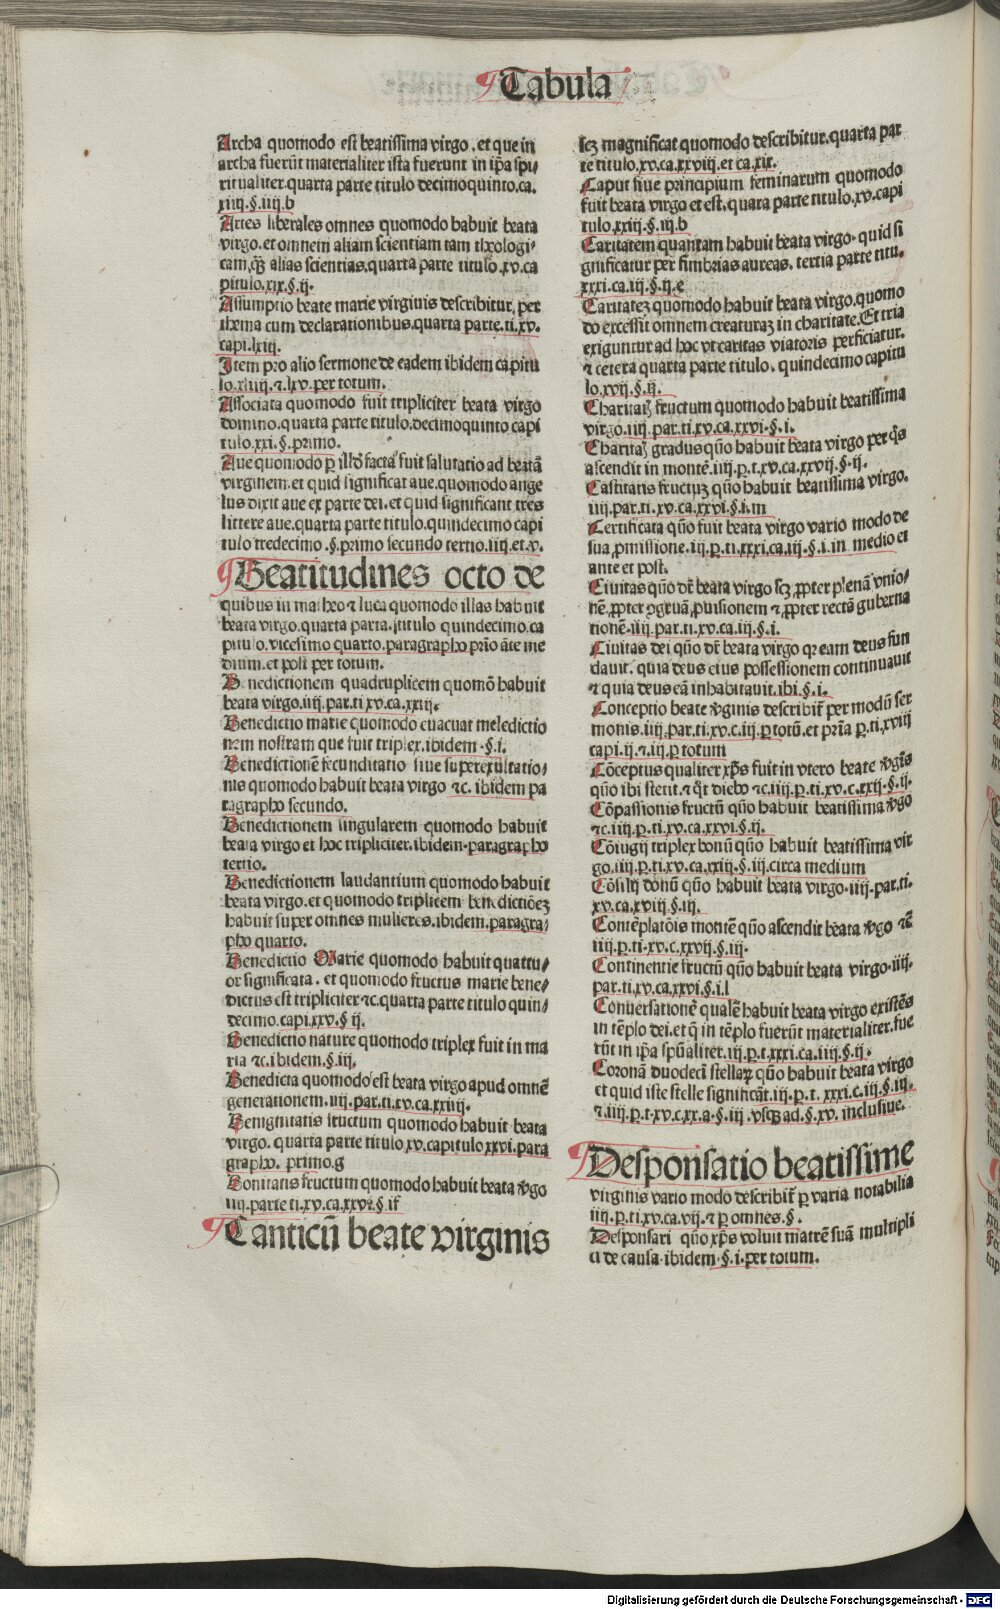 Tabula
Archa quomodo est beatissima virgo. et que in
archa fuerūt materialiter ista fuerunt in ip̄a spi⸗
ritualiter. quarta parte titulo decimoquinto. ca.
xiiij. §. iiij. b
Artes liberales omnes quomodo habuit beata
virgo. et omnem aliam scientiam tam theologi⸗
cam, q̄ȝ alias scientias. quarta parte titulo. xv. ca
pitulo. xix. §. ij.
Assumptio beate marie virginis describitur, per
thema cum declarationibus. quarta parte. ti. xv.
capi. xliij.
Item pro alio sermone de eadem ibidem capitu
lo. xliiij. ⁊. lxv. per totum.
Associata quomodo fuit tripliciter beata virgo
domino. quarta parte titulo. decimoquinto capi
tulo. xxi. §. primo.
Aue quomodo ꝑ illd̄ facta fuit salutatio ad beatā
virginem. et quid significat aue. quomodo ange
lus dixit aue ex parte dei. et quid significant tres
littere aue. quarta parte titulo. quindecimo capi
tulo tredecimo. §. primo secundo tertio. iiij. et. v.
Beatitudines octo de
quibus in matheo ⁊ luca quomodo illas habuit
beata virgo. quarta parta. titulo quindecimo. ca
pitulo. vicesimo quarto. paragrapho prīo āte me
dium. et post per totum.
B nedictionem quadruplicem quomō habuit
beata virgo. iiij. par. ti xv. ca. xxiij.
Benedictio marie quomodo euacuat meledictio
nem nostram que fuit triplex. ibidem. §. i.
Benedictionē fecunditatio siue superexultatio⸗
nis quomodo habuit beata virgo ⁊c. ibidem pa
ragrapho secundo.
Benedictionem singularem quomodo habuit
beata virgo et hoc tripliciter. ibidem. paragrapho
tertio.
Benedictionem laudantium quomodo habuit
beata virgo. et quomodo triplicem benedictiōeȝ
habuit super omnes mulieres. ibidem. paragra⸗
pho quarto.
Benedictio Marie quomodo habuit quattu⸗
or significata. et quomodo fructus marie bene⸗
dictus est tripliciter ⁊c. quarta parte titulo quin⸗
decimo. capi. xxv. § ij.
Benedictio nature quomodo triplex fuit in ma
ria ⁊c. ibidem. §. iij.
Benedicta quomodo est beata virgo apud omnē
generationem. iiij. par. ti. xv. ca. xxiiij.
Benignitatis fructum quomodo habuit beata
virgo. quarta parte titulo xv. capitulo xxvi. para
grapho. primo. g
Bonitatis fructum quomodo habuit beata v̄go
iiij. parte ti. xv. ca. xxvi. §.
Canticū beate virginis
scȝ magnificat quomodo describitur. quarta par
te titulo. xv. ca. xxviij. et ca. xix.
Caput siue principium feminarum quomodo
fuit beata virgo et est. quara parte titulo. xv. capi
tulo. xxiij. §. iij. b
Caritatem quantam habuit beata virgo. quid si
gnificatur per fimbrias aureas. tertia parte titu.
xxxi. ca. iij. §. ij. e
Caritateȝ quomodo habuit beata virgo. quomo
do excessit omnem creaturaȝ in charitate. Et tria
exiguntur ad hoc vt caritas viatoris perficiatur.
⁊ cetera quarta parte titulo. quindecimo capitu
lo. xvij. §. ij.
Charitatꝭ fructum quomodo habuit beatissima
virgo. iiij. par. ti. xv. ca. xxvi. §. i.
Charitatꝭ gradus quō habuit beata virgo per q̄s
ascendit in montē. iiij. p. t. xv. ca. xxvij. §. ij.
Castitatis fructuȝ quō habuit beatissima virgo.
iiij. par. ti. xv. ca. xxvi. §. i. m
Certificata quō fuit beata virgo vario modo de
sua ꝓmissione. iij. p. ti. xxxi. ca. iij. §. i. in medio et
ante et post.
Ciuitas quō dr̄ beata virgo scȝ ꝓpter plenā vnio⸗
nē. ꝓpter ꝯgruā ꝓuisionem ⁊ ꝓpter rectā guberna
tionē. iiij. par. ti. xv. ca. iij. §. i.
Ciuitas dei quō dr̄ beata virgo qꝛ eam deus fun
dauit. quia deus eius possessionem continuauit
⁊ quia deus eā inhabitauit. ibi. §. i.
Conceptio beate v̄ginis describit̄ per modū ser
monis. iiij. par. ti. xv. c. iij. ꝑ totū. et prīa p. ti. xviij
capi. ij. ⁊. iij. ꝑ totum
Cōceptus qualiter xp̄s fuit in vtero beate v̄gīs
quō ibi stetit. ⁊ q̄t diebꝰ ⁊c. iiij. p. ti. xv. c. xxij. §. ij.
Cōpassionis fructū quō habuit beatissima v̄go
⁊c. iiij. p. ti. xv. ca. xxvi. §. ij.
Cōiugij triplex bonū quō habuit beatissima vir
go. iiij. p. ti. xv. ca. xxiij. §. iij. circa medium
Cōsilij donū quō habuit beata virgo. iiij. par. ti.
xv. ca. xviij. §. iij.
Contēplatōis montē quō ascendit beata v̄go ⁊c̄
iiij. p. ti. xv. c. xxvij. §. iij.
Continentie fructū quō habuit beata virgo. iiij.
par. ti. xv. ca. xxvi. §. i. l
Conuersationē qualē habuit beata virgo existēs
in tēplo dei. et q̄ in tēplo fuerūt materialiter. fue
rūt in ip̄a spūaliter. iij. p. t. xxxi. ca. iiij. §. ij.
Coronā duodeci stellaꝝ quō habuit beata virgo
et quid iste stelle significāt. iij. p. t. xxxi. c. iij. §. iij.
⁊. iiij. p. t. xv. c. xx. a. §. iij. vsqȝ ad. §. xv. inclusiue.
Desponsatio beatissime
virginis vario modo describit̄ ꝑ varia notabilia
iiij. p. ti. xv. ca. vij. ⁊ ꝑ omnes. §.
Desponsari quō xp̄s voluit matrē suā multipli
ci de causa. ibidem. §. i. per totum.
Digitalisierung gefördert durch die Deutsche Forschungsgemeinschaft - DFG